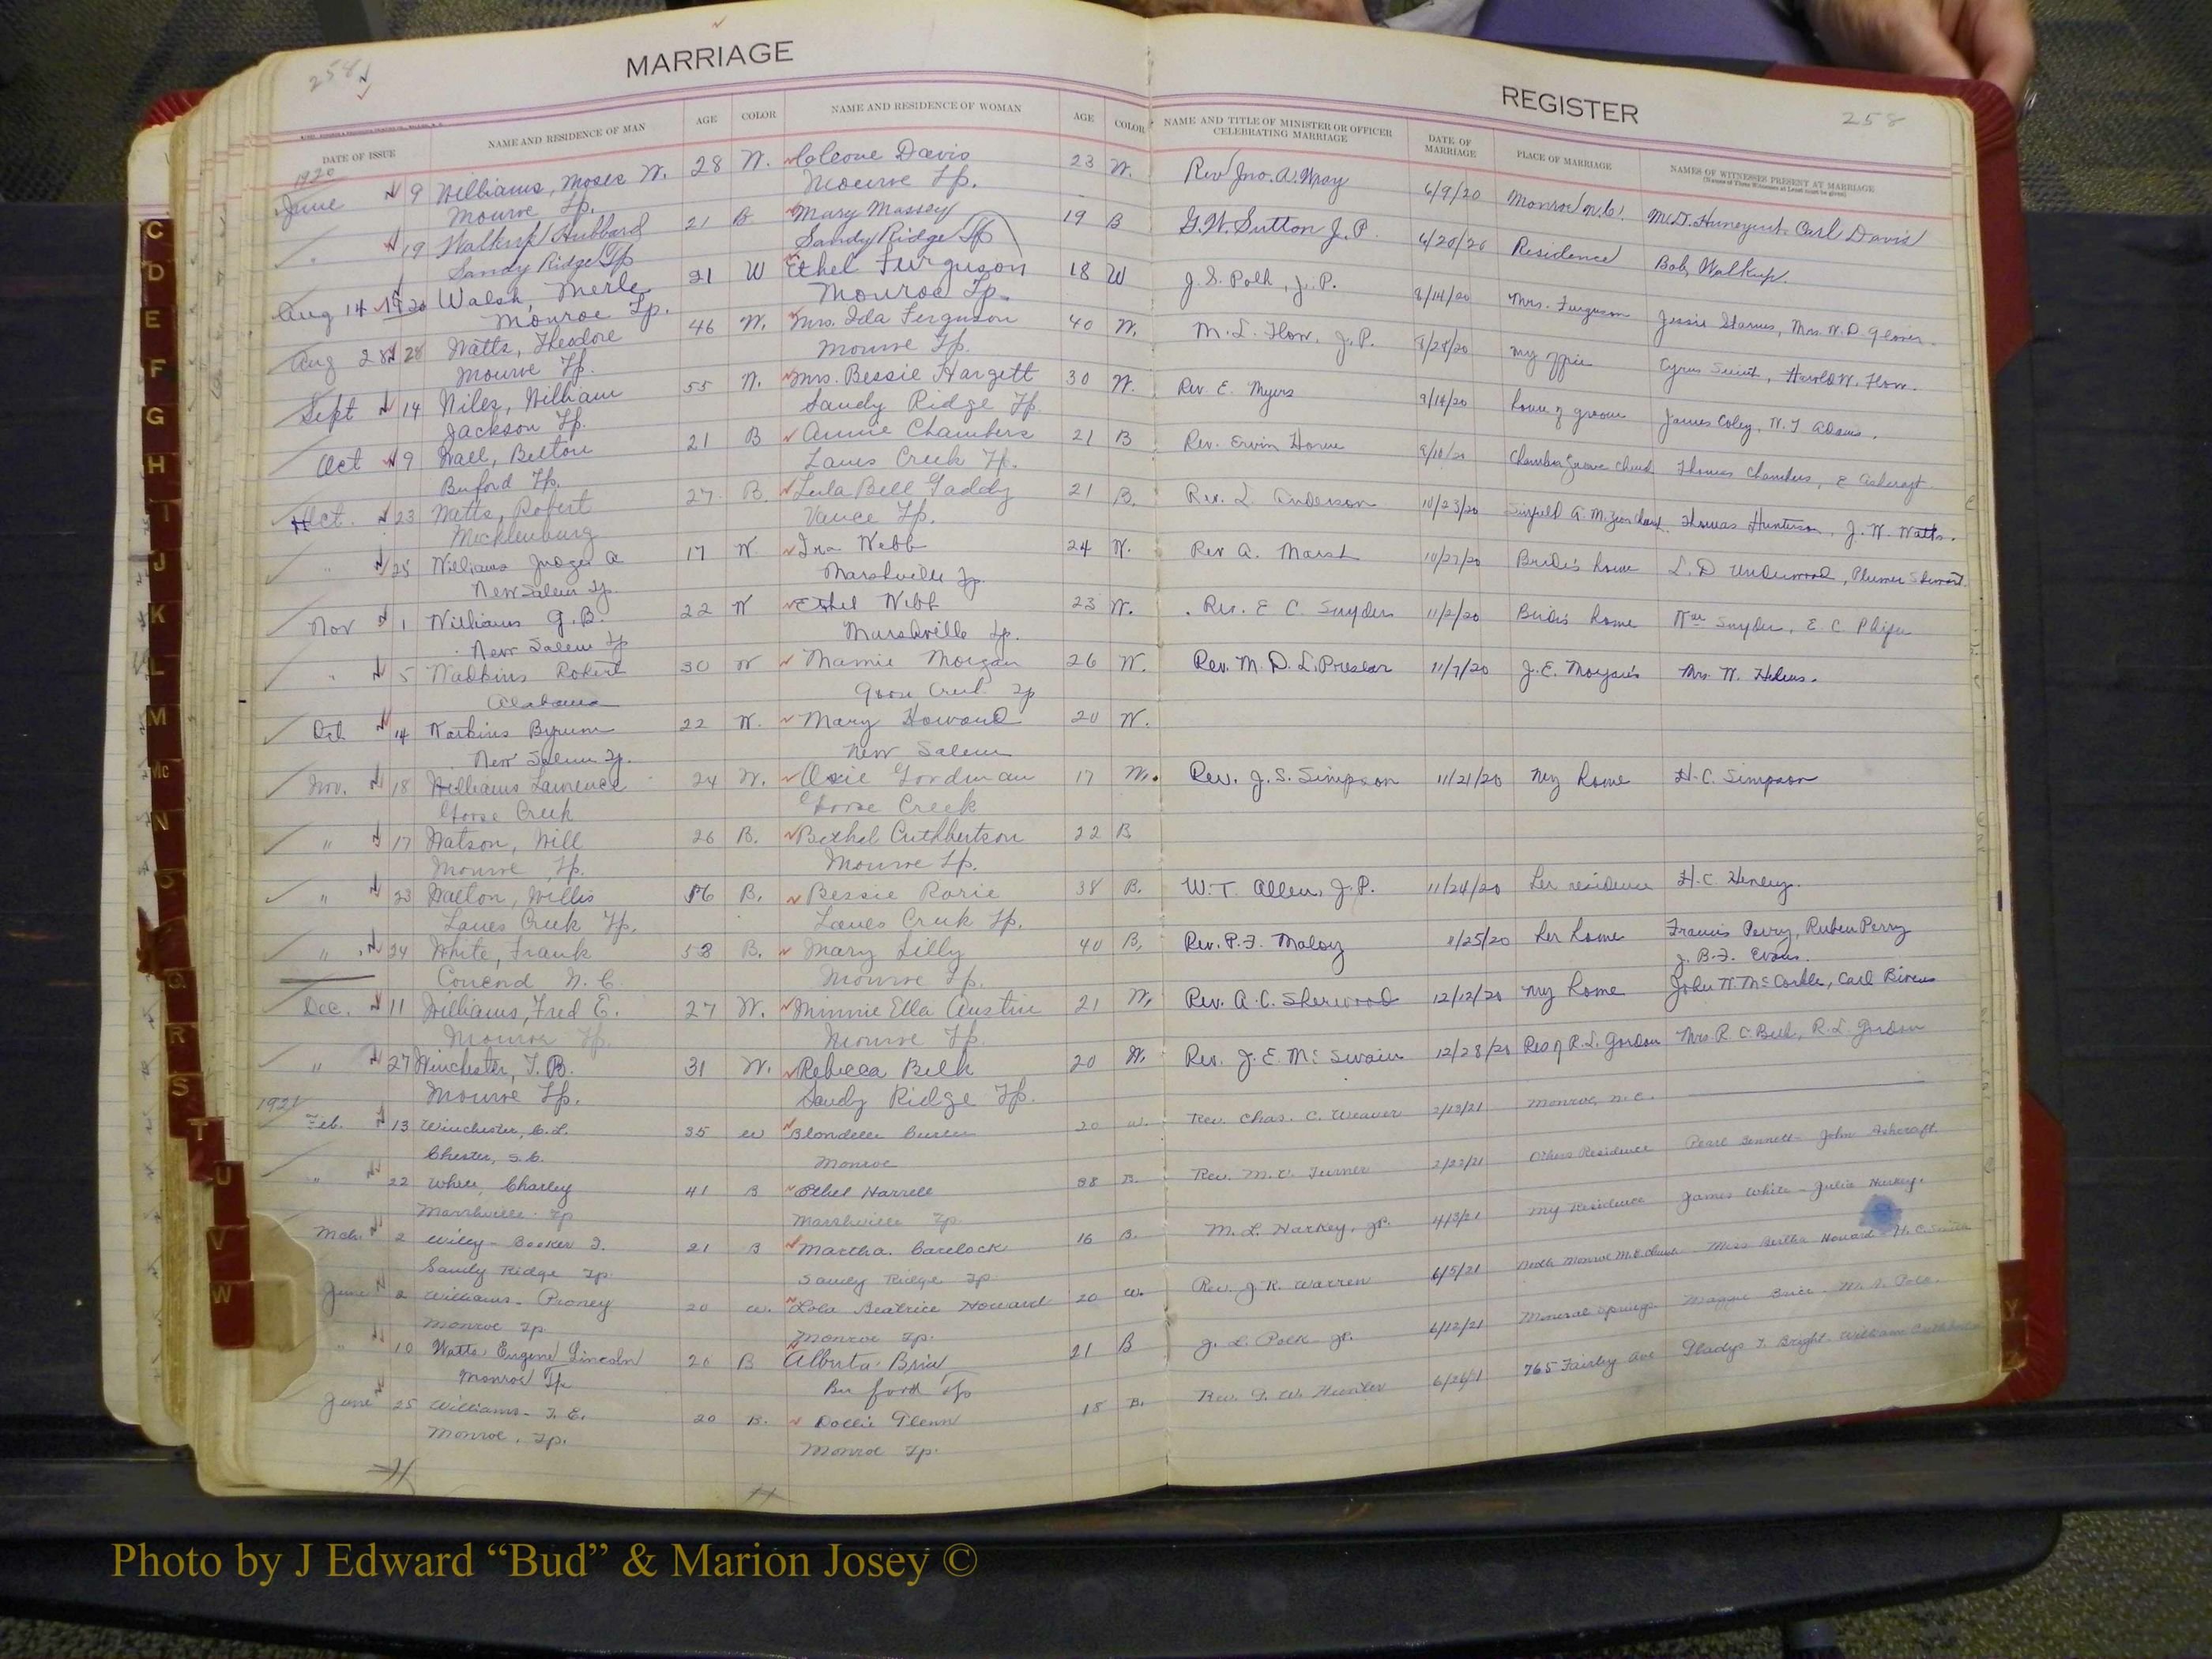 258
MARRIAGE
REGISTER
258
DATE OF ISSUE NAME AND RESIDENCE OF MAN AGE COLOR NAME AND RESIDENCE OF WOMAN AGE COLOR NAME AND TITLE OF MINISTER OR OFFICER CELEBRATING MARRIAGE DATE OF MARRIAGE PLACE OF MARRIAGE NAMES OF WITNESSES PRESENT AT MARRIAGE
1920
June 9 Williams, Moses W. 28 W. Cleone Davis 23 W. Rev Jno. A. Wray 6/9/20 Monroe N.C. Carl Davis
Monroe Tp. Monroe Tp.
" 19 Walkup Hubbard 21 B Mary Massey 19 B G.W. Sutton J.P. 6/20/20 Residence Bob Walkup.
Sandy Ridge Tp Sandy Ridge Tp
Aug 14 1920 Walsh, Merle 21 W Ethel Ferguson 18 W J.S. Polk, J.P. 8/14/20 Mrs. Ferguson Jessie Starnes, Mrs. W.D. Glover.
Monroe Tp. Monroe Tp.
Aug 28 28 Watts, Theodore 46 W. Mrs. Ida Ferguson 40 W. M.L. Flow, J.P. 8/28/20 my office Harold W. Flow.
Monroe Tp. Monroe Tp.
Sept 14 Niles, William 55 W. Mrs. Bessie Hargett 30 W. Rev. E. Myers 9/14/20 home of groom James Coley, W.T. Adams.
Jackson Tp. Sandy Ridge Tp.
Oct 9 Wall, Belton 21 B Annie Chambers 21 B Rev. Ervin Horne 9/10/20 Thomas Chambers, E Ashcraft
Buford Tp. Lanes Creek Tp.
Oct. 23 Watts, Robert 27 B Lula Bell Gaddy 21 B. Rev. L. Anderson 10/23/20 Thomas Hunterson, J.W. Watts.
Mecklenburg Vance Tp.
" 25 Williams Judge A 17 W. Ira Webb 24 W. Rev A. Marsh 10/27/20 Bride's home L.D Underwood, Plumer Stewart
New Salem Tp. Marshville Tp.
Nov 1 Williams G.B. 22 W Ethel Webb 23 W. Rev. E C. Snyder 11/2/20 Bride's home Snyder, E.C. Phifer
New Salem Tp Marshville Tp.
" 5 Watkins Robert 30 W Mamie Morgan 26 W. Rev. M.D.L. Preslar 11/7/20 J.E. Morgan's Mrs. W. Helms.
Alabama Goose Creek Tp
Oct 14 Watkins Byrum 22 W. Mary Howard 20 W.
New Salem Tp. New Salem
Nov. 18 Williams Lawrence 24 W. Osie Gordman 17 W. Rev. J.S. Simpson 11/21/20 my home H.C. Simpson
Goose Creek Goose Creek
" 17 Watson, Will 26 B. Bethel Cuthbertson 22 B
Monroe Tp. Monroe Tp.
" 23 Walton, Willis B. Bessie Rorie 38 B. W.T. Allen, J.P. 11/24/20 her residence H.C. Henry.
Lanes Creek Tp. Lanes Creek Tp.
" 24 White, Frank 53 B. Mary Lilly 40 B, Rev. P.F. Maloy 11/25/20 her home Francis Perry, Ruben Perry
J.B.F. Evans.
Concord N.C. Monroe Tp.
Dec. 11 Williams, Fred E. 27 W. Minnie Ella Austin 21 W, Rev. A.C. Sherwood 12/12/20 my home John W. McCorkle, Carl Bivens
Monroe Tp. Monroe Tp.
" 27 Winchester, T.B. 31 W. Rebecca Belk 20 W. Rev. J.E. McSwain 12/28/20 Res of R.L. Gordon Mrs. R.C. Belk, R.L. Gordon
Monroe Tp. Sandy Ridge Tp.
1921
Feb. 13 Winchester, C.L. 35 W Blondelle 20 W. Rev. Chas. C. Weaver 2/13/21 Monroe, N.C.
Chester, S.C. Monroe
" 22 White, Charley 41 B Ethel Harrell 38 B. Rev. M.C. Turner 2/22/21 Others Residence Pearl Bennett - John Ashcraft.
Marshville Tp Marshville Tp.
Mch. 2 Wiley - Booker T. 21 B Martha 16 B. M.L. Harkey, JP. 4/3/21 My Residence James White - Julia Harkey.
Sandy Ridge Tp. Sandy Ridge Tp
June 2 Williams - Proney 20 W. Lola Beatrice Howard 20 W. Rev. J.R. Warren 6/5/21 North Monroe M.E. Church Miss Bertha Howard - H.C. Smith
Monroe Tp. Monroe Tp.
" 10 Watts Eugene Lincoln 20 B Alberta 21 B J.L. Polk JP. 6/12/21 Mineral Springs Maggie Brice - M.L. Polk.
Monroe Tp Buford Tp
June 25 Williams - T.E. 20 B. Dollie Glenn 18 B. Rev. 6/26/21 765 Fairley Ave Gladys T. Bright - William Cuthbertson
Monroe, Tp. Monroe Tp.
C
D
E
F
G
H
I
J
K
L
M
Mc
N
O
Q
R
S
T
U
V
W
Y
Z
Photo by J Edward “Bud” & Marion Josey ©